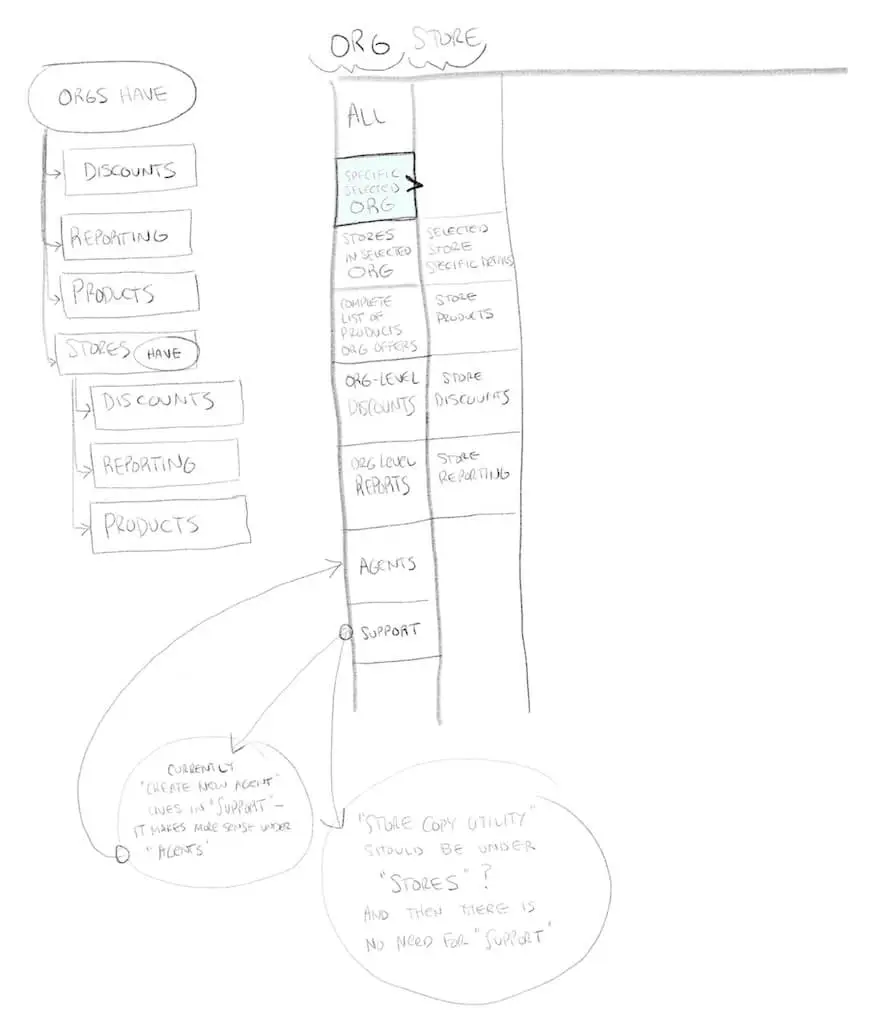 ORG STORE
ORGS HAVE
DISCOUNTS
REPORTING
PRODUCTS
STORES HAVE
DISCOUNTS
REPORTING
PRODUCTS
ALL
SPECIFIC
SELECTED
ORG
>
STORES
IN SELECTED
ORG
SELECTED
STORE
SPECIFIC DETAILS
COMPLETE
LIST OF
PRODUCTS
ORG OFFERS
STORE
PRODUCTS
ORG-LEVEL
DISCOUNTS
STORE
DISCOUNTS
ORG LEVEL
REPORTS
STORE
REPORTING
AGENTS
SUPPORT
CURRENTLY
"CREATE NEW AGENT"
LIVES IN "SUPPORT" -
IT MAKES MORE SENSE UNDER
"AGENTS"
"STORE COPY UTILITY"
SHOULD BE UNDER
"STORES" ?
AND THEN THERE IS
NO NEED FOR "SUPPORT"